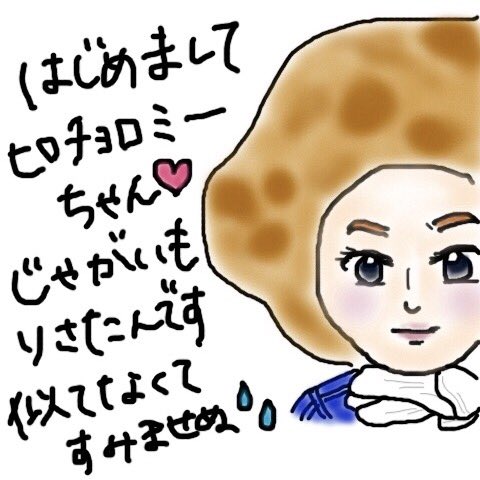 はじめまして
ヒロチョロミー
ちゃん
じゃがいも
りさたんです
似てなくて
すみませぬ